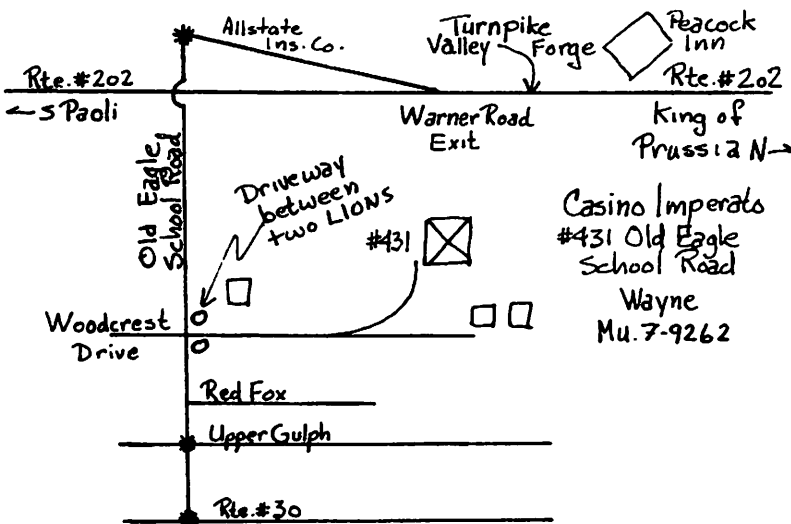 Allstate
Ins. Co.
Turnpike
Valley Forge
Peacock
Inn
Rte. #202
← S Paoli
Warner Road
Exit
Rte. #202
King of
Prussia N→
Old Eagle
School Road
Driveway
between
two LIONS
#431
Casino Imperato
#431 Old Eagle
School Road
Wayne
Mu. 7-9262
Woodcrest
Drive
Red Fox
Upper Gulph
Rte. #30